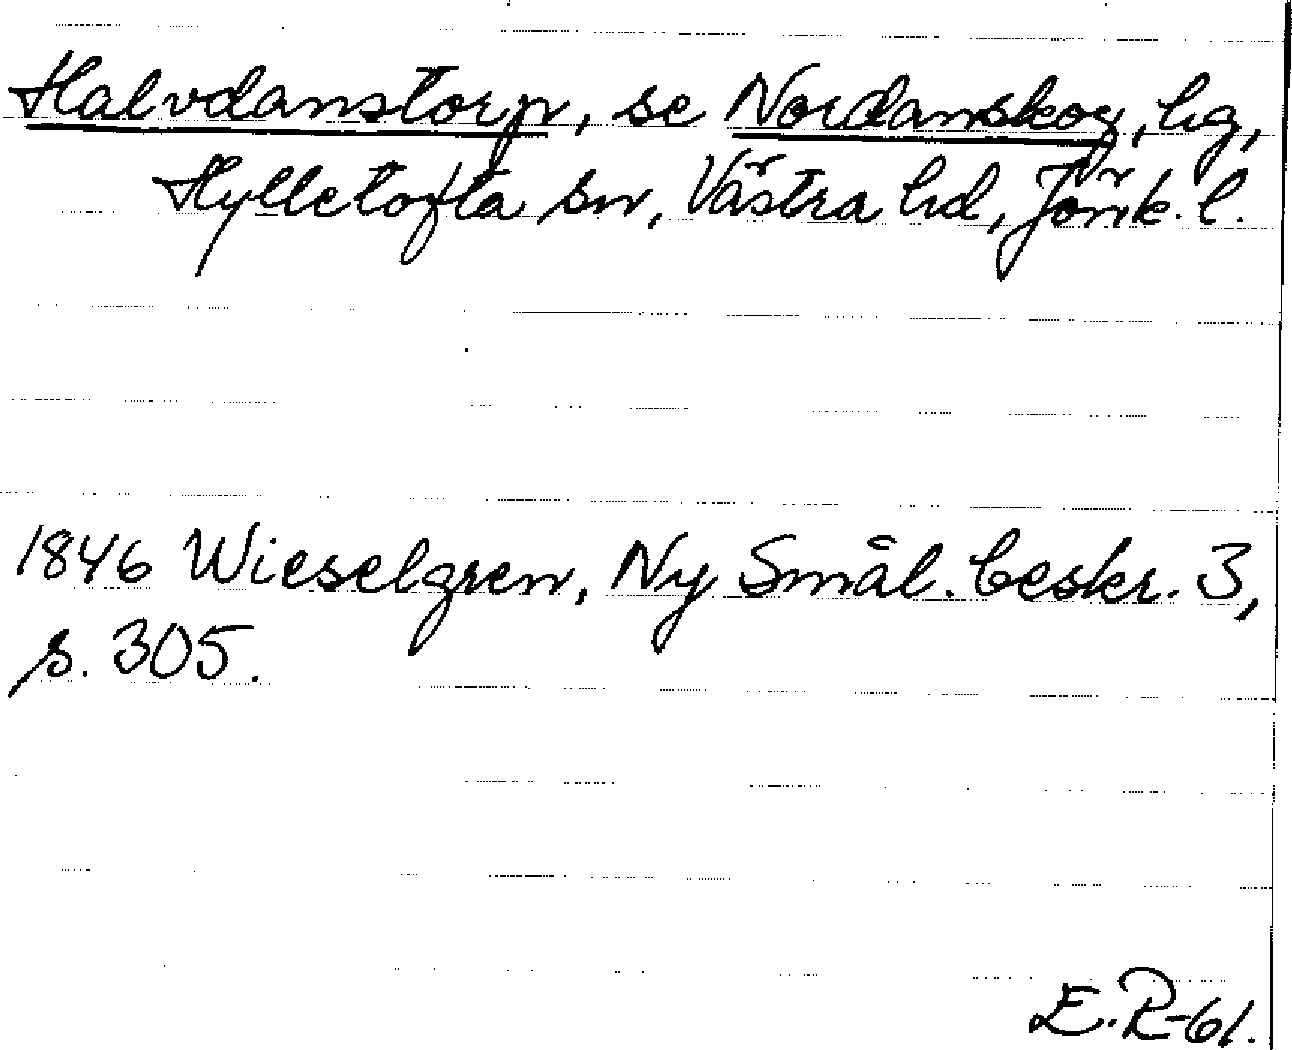 Halvdanstorp, se Nordanskog, hg,
Hylletofta sn, Västra hd, Jönk. l.
1846 Wieselgren, Ny Smål. beskr. 3,
s. 305.
E.R-61.